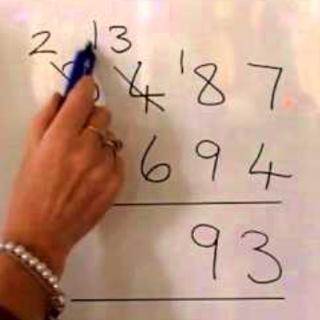 2 13 1
4 8 7
6 9 4
9 3